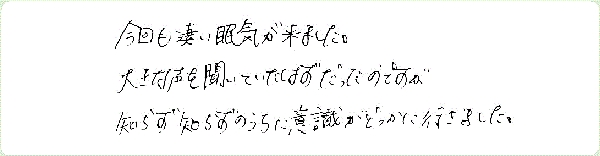 今回も凄い眠気が来ました。
大きな声を聞いていたはずだったのですが
知らず知らずのうちに意識がどっかに行きました。